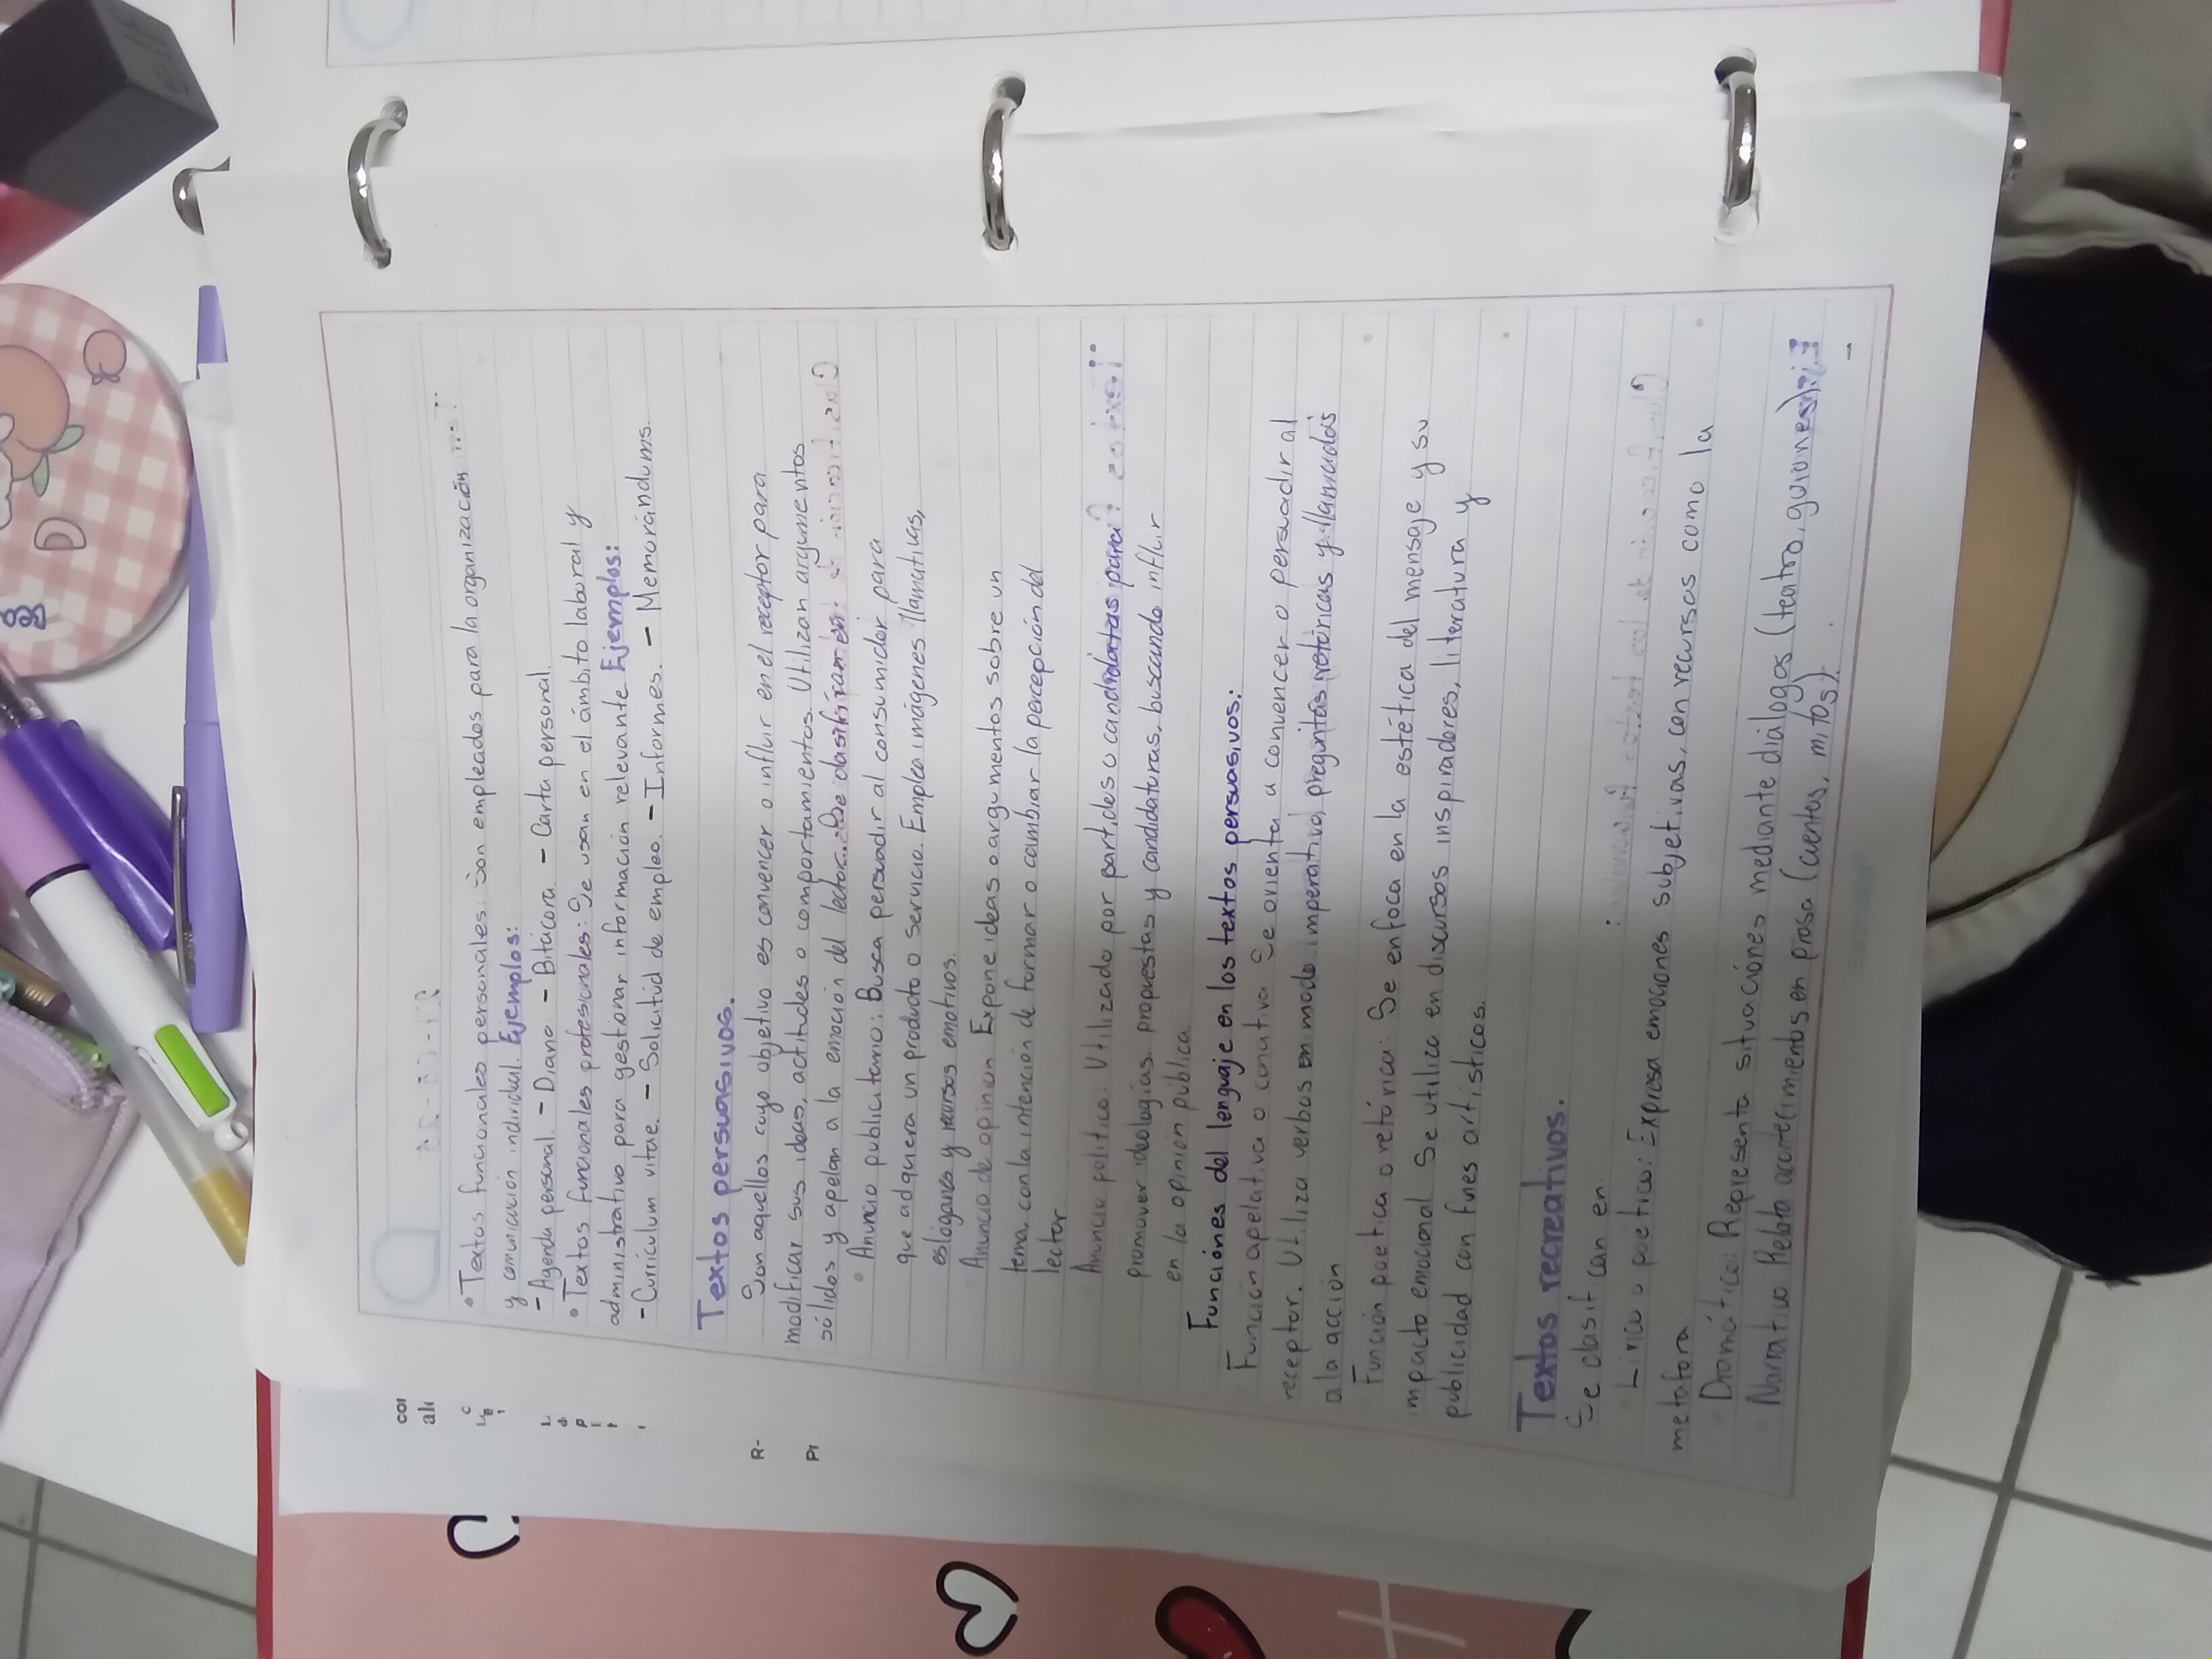 • Textos funcionales personales: Son empleados para la organización
y comunicación individual. Ejemplos:
- Agenda personal. - Diario - Bitácora - Carta personal
• Textos funcionales profesionales: Se usan en el ámbito laboral y
administrativo para gestionar información relevante Ejemplos:
- Currículum vitae. - Solicitud de empleo. - Informes. - Memorándums.
Textos persuasivos.
Son aquellos cuyo objetivo es convencer o influir en el receptor para
modificar sus ideas, actitudes o comportamientos. Utilizan argumentos
sólidos y apelan a la emoción del lector. Se clasifican en:
• Anuncio publicitario: Busca persuadir al consumidor para
que adquiera un producto o servicio. Emplea imágenes llamativas,
eslóganes y recursos emotivos.
Anuncio de opinión Expone ideas o argumentos sobre un
tema, con la intención de formar o cambiar la percepción del
lector.
Anuncio político: Utilizado por partidos o candidatos para
promover ideologías, propuestas y candidaturas, buscando influir
en la opinión pública
Funciones del lenguaje en los textos persuasivos:
Función apelativa o conativa: Se orienta a convencer o persuadir al
receptor. Utiliza verbos en modo imperativo, preguntas retóricas y llamados
a la acción
Función poética o retórica: Se enfoca en la estética del mensaje y su
impacto emocional Se utiliza en discursos inspiradores, literatura y
publicidad con fines artísticos.
Textos recreativos.
Se clasifican en:
Lírico o poético: Expresa emociones subjetivas, con recursos como la
metáfora
Dramático: Representa situaciones mediante diálogos (teatro, guiones)
Narrativo Relata acontecimientos en prosa (cuentos, mitos).